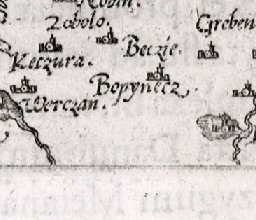 Zobolo.
Greben
Beczie.
Keczura.
Bopynecz
Werczan.